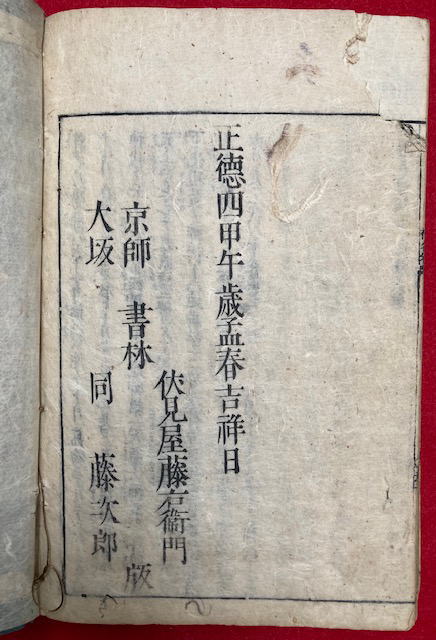 正德四甲午歳孟春吉祥日
伏見屋藤右衞門
京師 書林 版
大坂 同 藤次郎